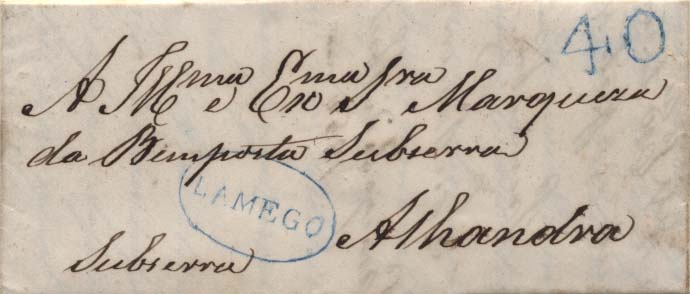 40
A Illma e Exma Sra Marqueza
da Bemposta Subserra
LAMEGO
Alhandra
Subserra